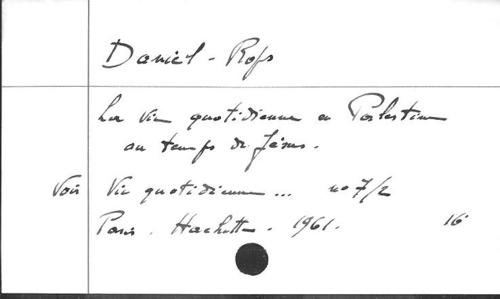 Daniel-Rops
La vie quotidienne en Palestine
au temps de Jésus.
Voir Vie quotidienne... no 7/2
Paris. Hachette. 1961. 16